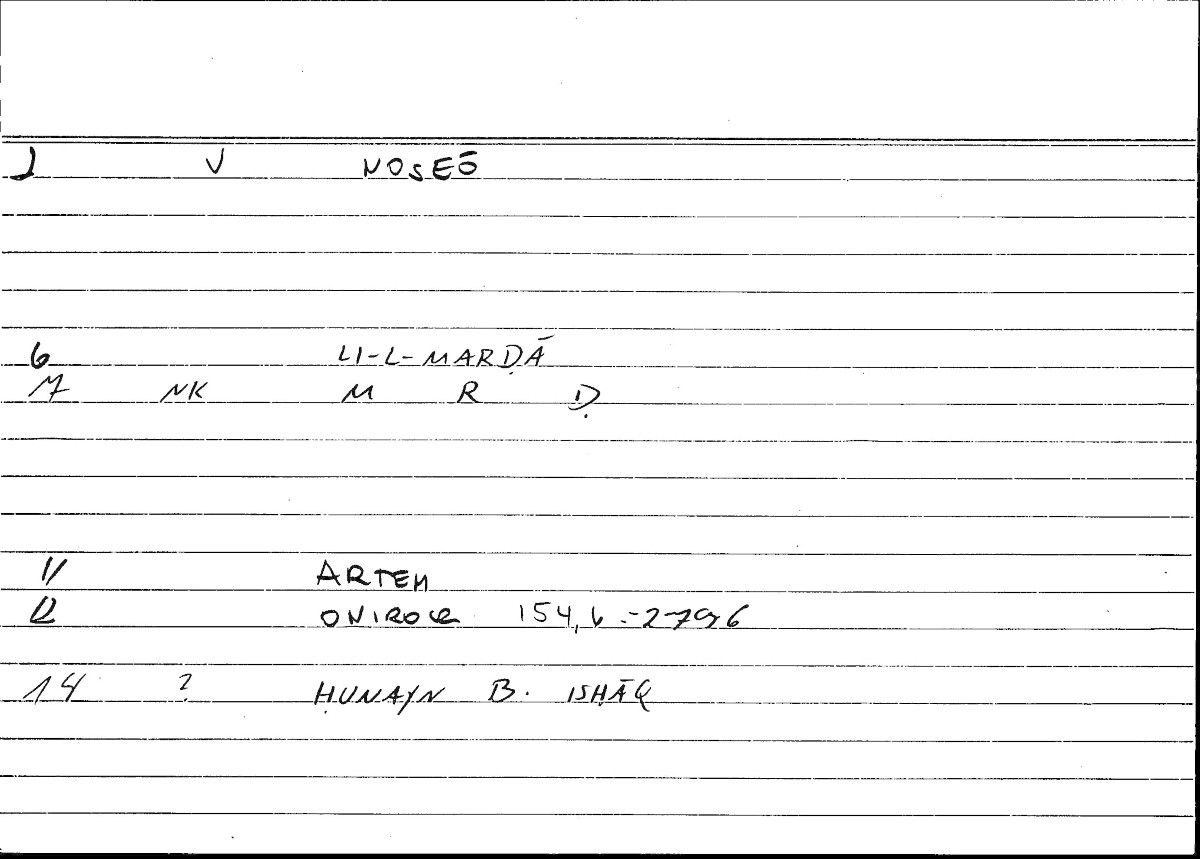 2 V NOSEŌ
6 LI-L-MARḌĀ
7 NK M R Ḍ
11 ARTEM
12 ONIROCR 154,6
14 ? ḤUNAYN B. ISḤĀQ